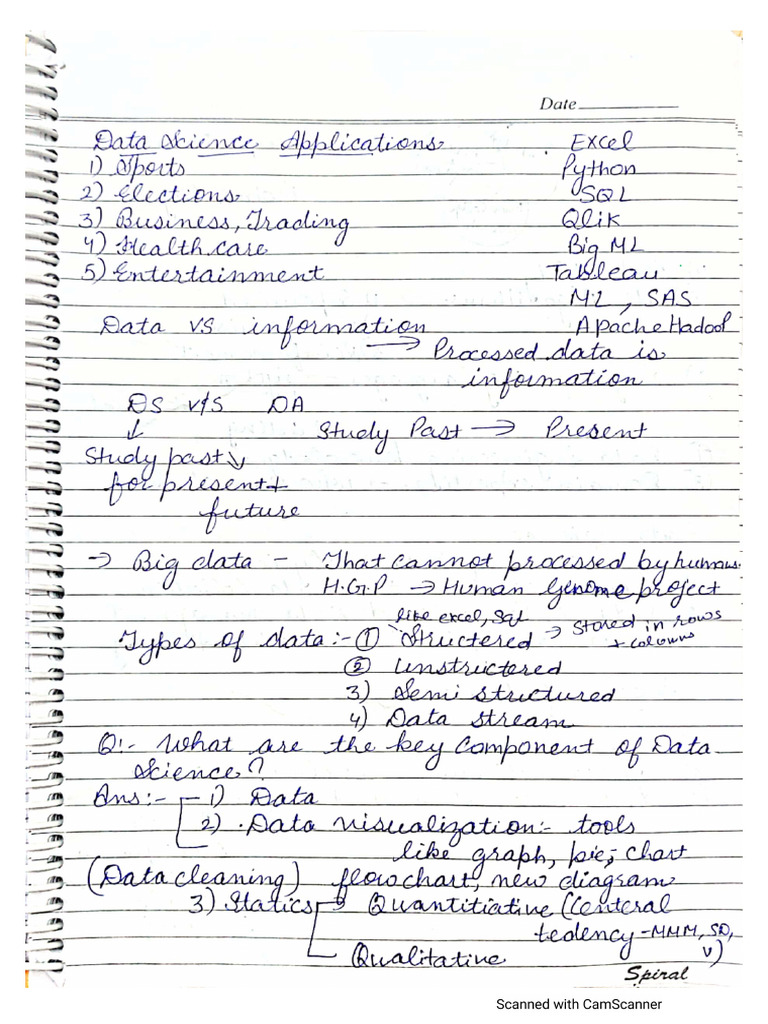 Date
Data Science Applications Excel
1) Sports Python
2) Elections SQL
3) Business, Trading Qlik
4) Health care Big ML
5) Entertainment Tableau
ML, SAS
Data vs information Apache Hadoop
→ Processed data is
information
DS v/s DA
↓ Study Past → Present
Study past
for present +
future
→ Big data - That cannot processed by humans.
H.G.P → Human Genome project
like excel, Sql
Types of data :- ① Structered → Stored in rows
+ colowns
② Unstructered
3) Semi structured
4) Data stream
Q:- What are the key component of Data
Science?
Ans:- 1) Data
2) Data visualization:- tools
like graph, pie, chart
(Data cleaning) flowchart, new diagram
3) Statics → Quantitiative (Centeral
tedency - MMM, SD,
V)
Qualitative
Spiral
Scanned with CamScanner